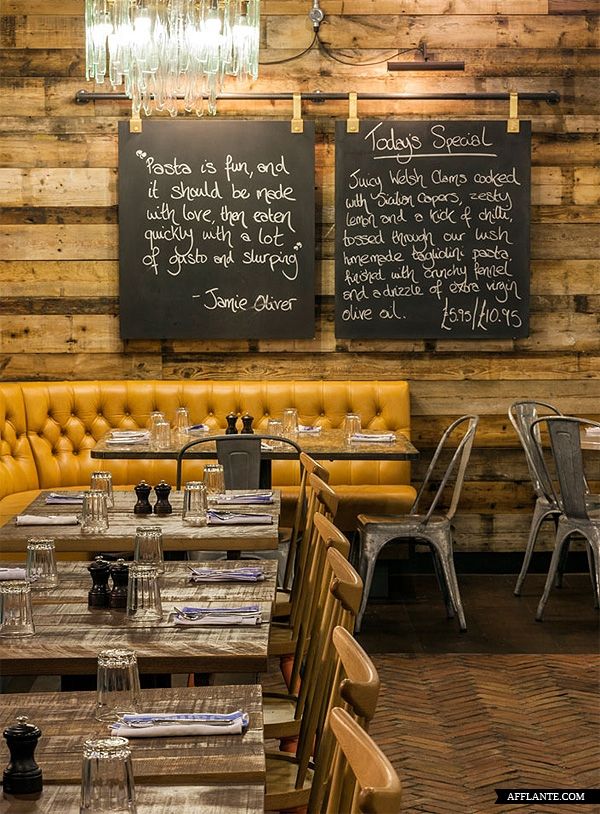 "Pasta is fun, and
it should be made
with love, then eaten
quickly with a lot
of gusto and slurping"
- Jamie Oliver
Today's Special
Juicy Welsh Clams cooked
with Sicilian capers, zesty
lemon and a kick of chilli,
tossed through our lush
homemade tagliolini pasta,
finished with crunchy fennel
and a drizzle of extra virgin
olive oil. £5.95/£10.95
AFFLANTE.COM